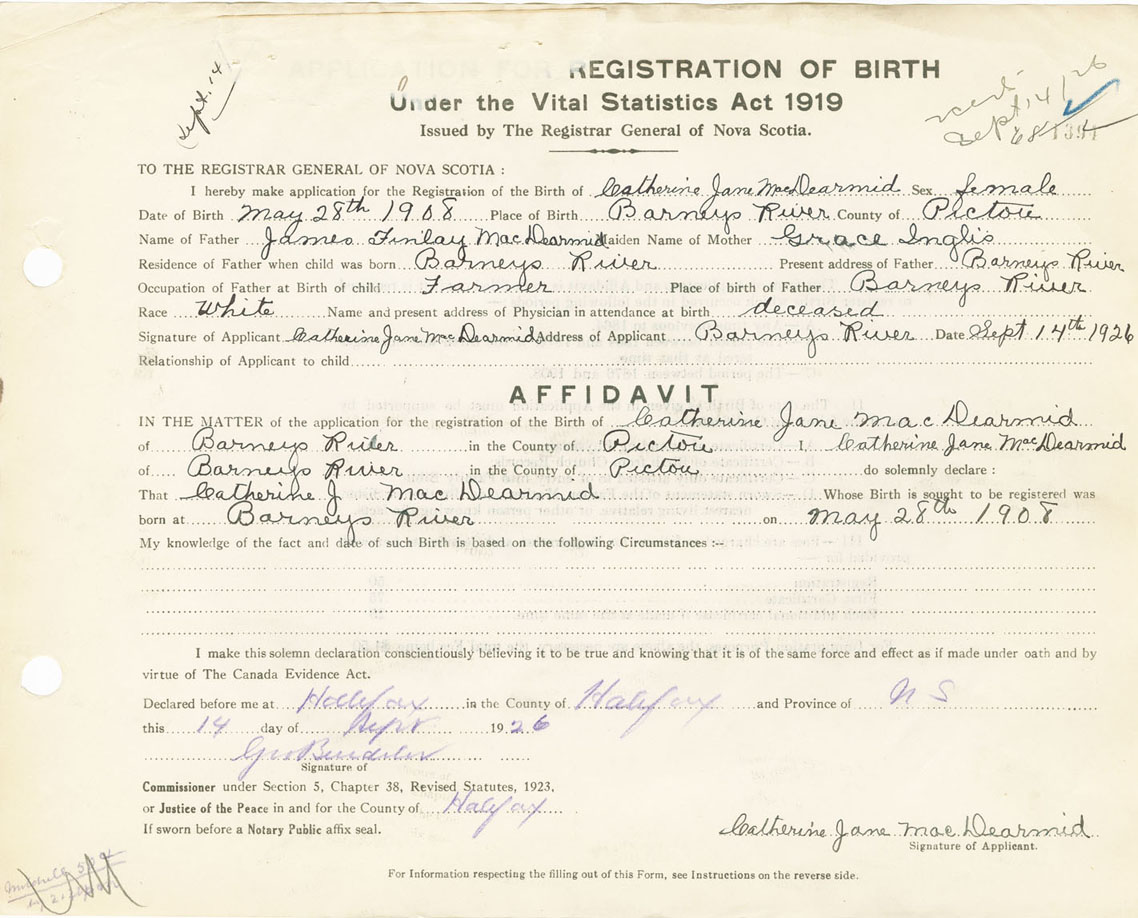 Sept. 14
REGISTRATION OF BIRTH
Under the Vital Statistics Act 1919
Issued by The Registrar General of Nova Scotia.
Sept 14/26
TO THE REGISTRAR GENERAL OF NOVA SCOTIA :
I hereby make application for the Registration of the Birth of Catherine Jane MacDearmid Sex female
Date of Birth May 28th 1908 Place of Birth Barneys River County of Pictou
Name of Father James Finlay MacDearmid Maiden Name of Mother Grace Inglis
Residence of Father when child was born Barneys River Present address of Father Barneys River
Occupation of Father at Birth of child Farmer Place of birth of Father Barneys River
Race White Name and present address of Physician in attendance at birth deceased
Signature of Applicant Catherine Jane MacDearmid Address of Applicant Barneys River Date Sept 14th 1926
Relationship of Applicant to child
AFFIDAVIT
IN THE MATTER of the application for the registration of the Birth of Catherine Jane MacDearmid
of Barneys River in the County of Pictou I, Catherine Jane MacDearmid
of Barneys River in the County of Pictou do solemnly declare :
That Catherine J MacDearmid Whose Birth is sought to be registered was
born at Barneys River on May 28th 1908
My knowledge of the fact and date of such Birth is based on the following Circumstances :--
I make this solemn declaration conscientiously believing it to be true and knowing that it is of the same force and effect as if made under oath and by
virtue of The Canada Evidence Act.
Declared before me at Halifax in the County of Halifax and Province of N S
this 14 day of Sept 1926
Geo
Signature of
Commissioner under Section 5, Chapter 38, Revised Statutes, 1923,
or Justice of the Peace in and for the County of Halifax
If sworn before a Notary Public affix seal.
Catherine Jane MacDearmid
Signature of Applicant.
For Information respecting the filling out of this Form, see Instructions on the reverse side.